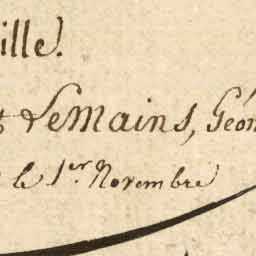 ille.
Lemains, Géom
le 1.er Novembre